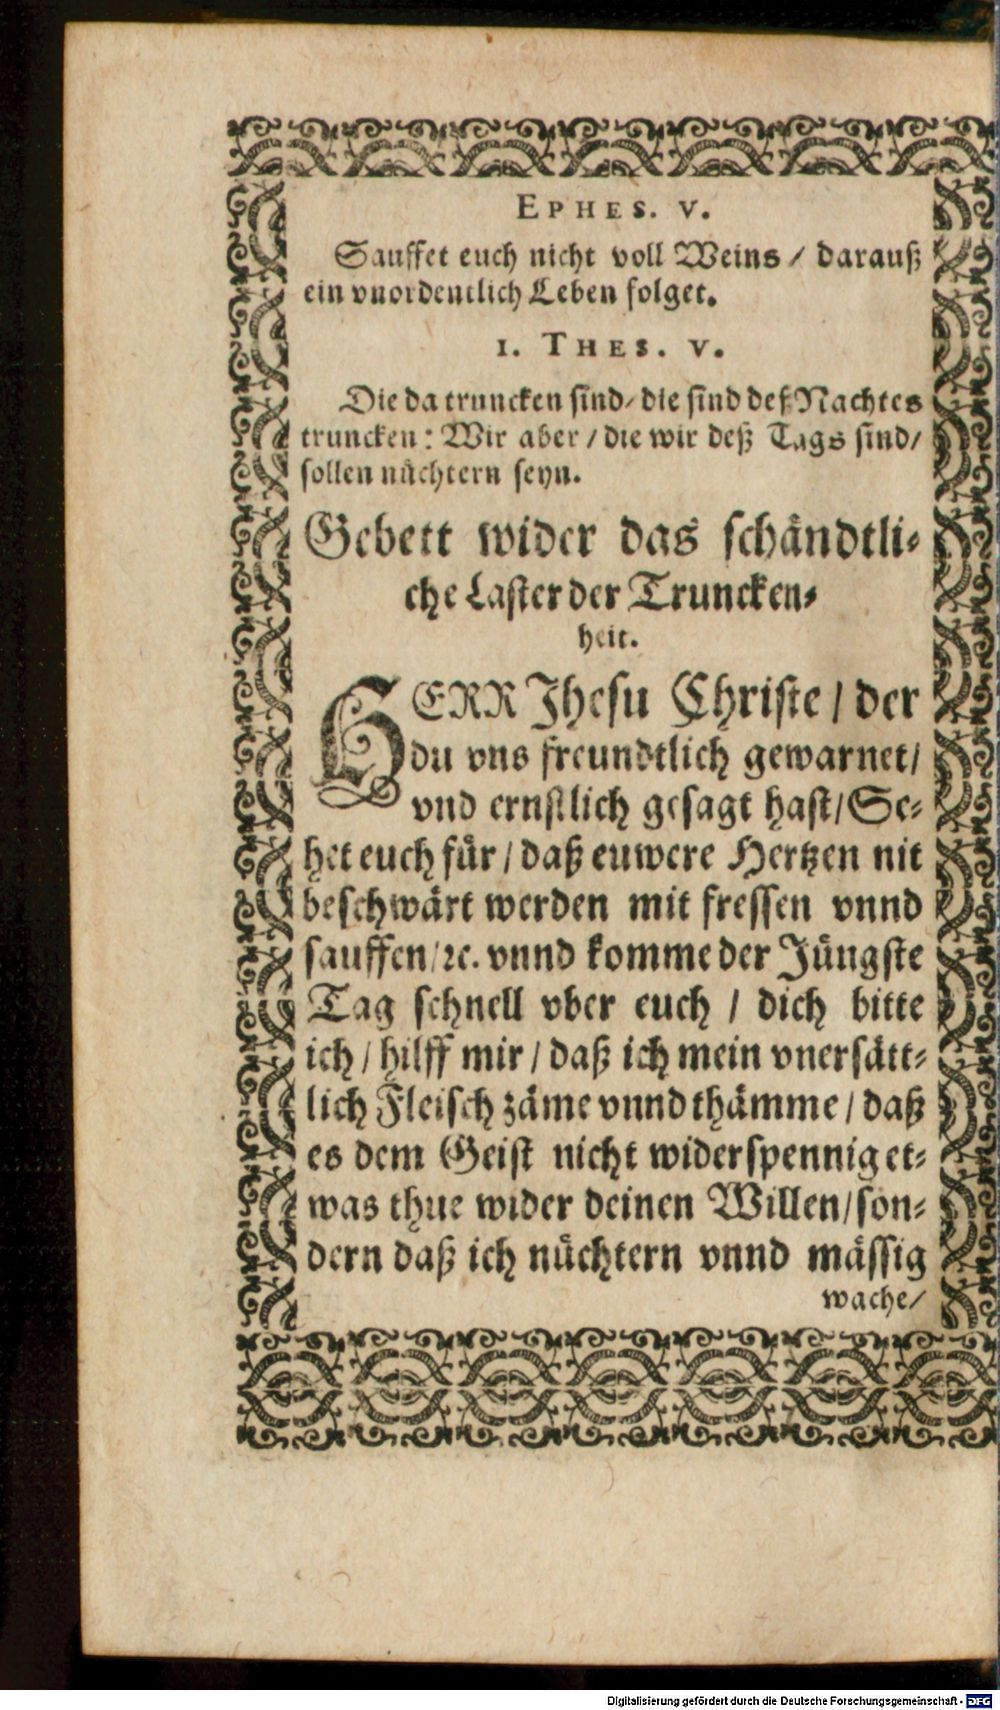 EPHES. V.
Sauffet euch nicht voll Weins / darauß
ein vnordentlich Leben folget.
1. THES. V.
Die da truncken sind / die sind deß Nachtes
truncken: Wir aber / die wir deß Tags sind /
sollen nüchtern seyn.
Gebett wider das schändtli-
che Laster der Truncken-
heit.
HERR Jhesu Christe / der
du vns freundtlich gewarnet /
vnd ernstlich gesagt hast / Se-
het euch für / daß euwere Hertzen nit
beschwärt werden mit fressen vnnd
sauffen / ꝛc. vnnd komme der Jüngste
Tag schnell vber euch / dich bitte
ich / hilff mir / daß ich mein vnersätt-
lich Fleisch zäme vnnd thämme / daß
es dem Geist nicht widerspennig et-
was thue wider deinen Willen / son-
dern daß ich nüchtern vnnd mässig
wache /
Digitalisierung gefördert durch die Deutsche Forschungsgemeinschaft - DFG